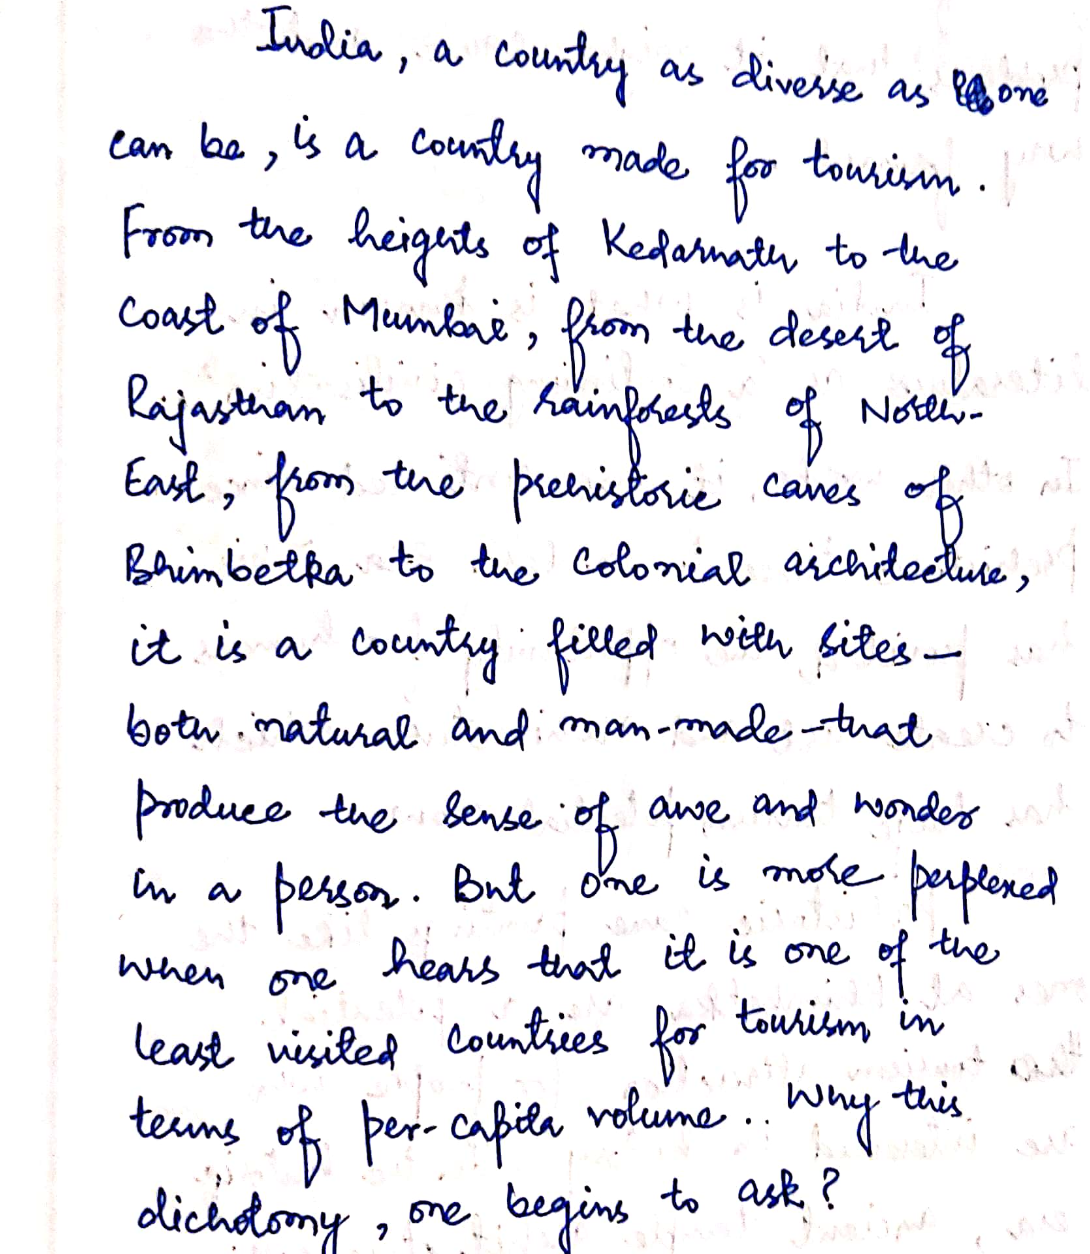 India, a country as diverse as one
can be, is a country made for tourism.
From the heights of Kedarnath to the
coast of Mumbai, from the desert of
Rajasthan to the rainforests of North-
East, from the prehistoric caves of
Bhimbetka to the colonial architecture,
it is a country filled with sites—
both natural and man-made—that
produce the sense of awe and wonder
in a person. But one is more perplexed
when one hears that it is one of the
least visited countries for tourism in
terms of per-capita volume.. Why this
dichotomy, one begins to ask?